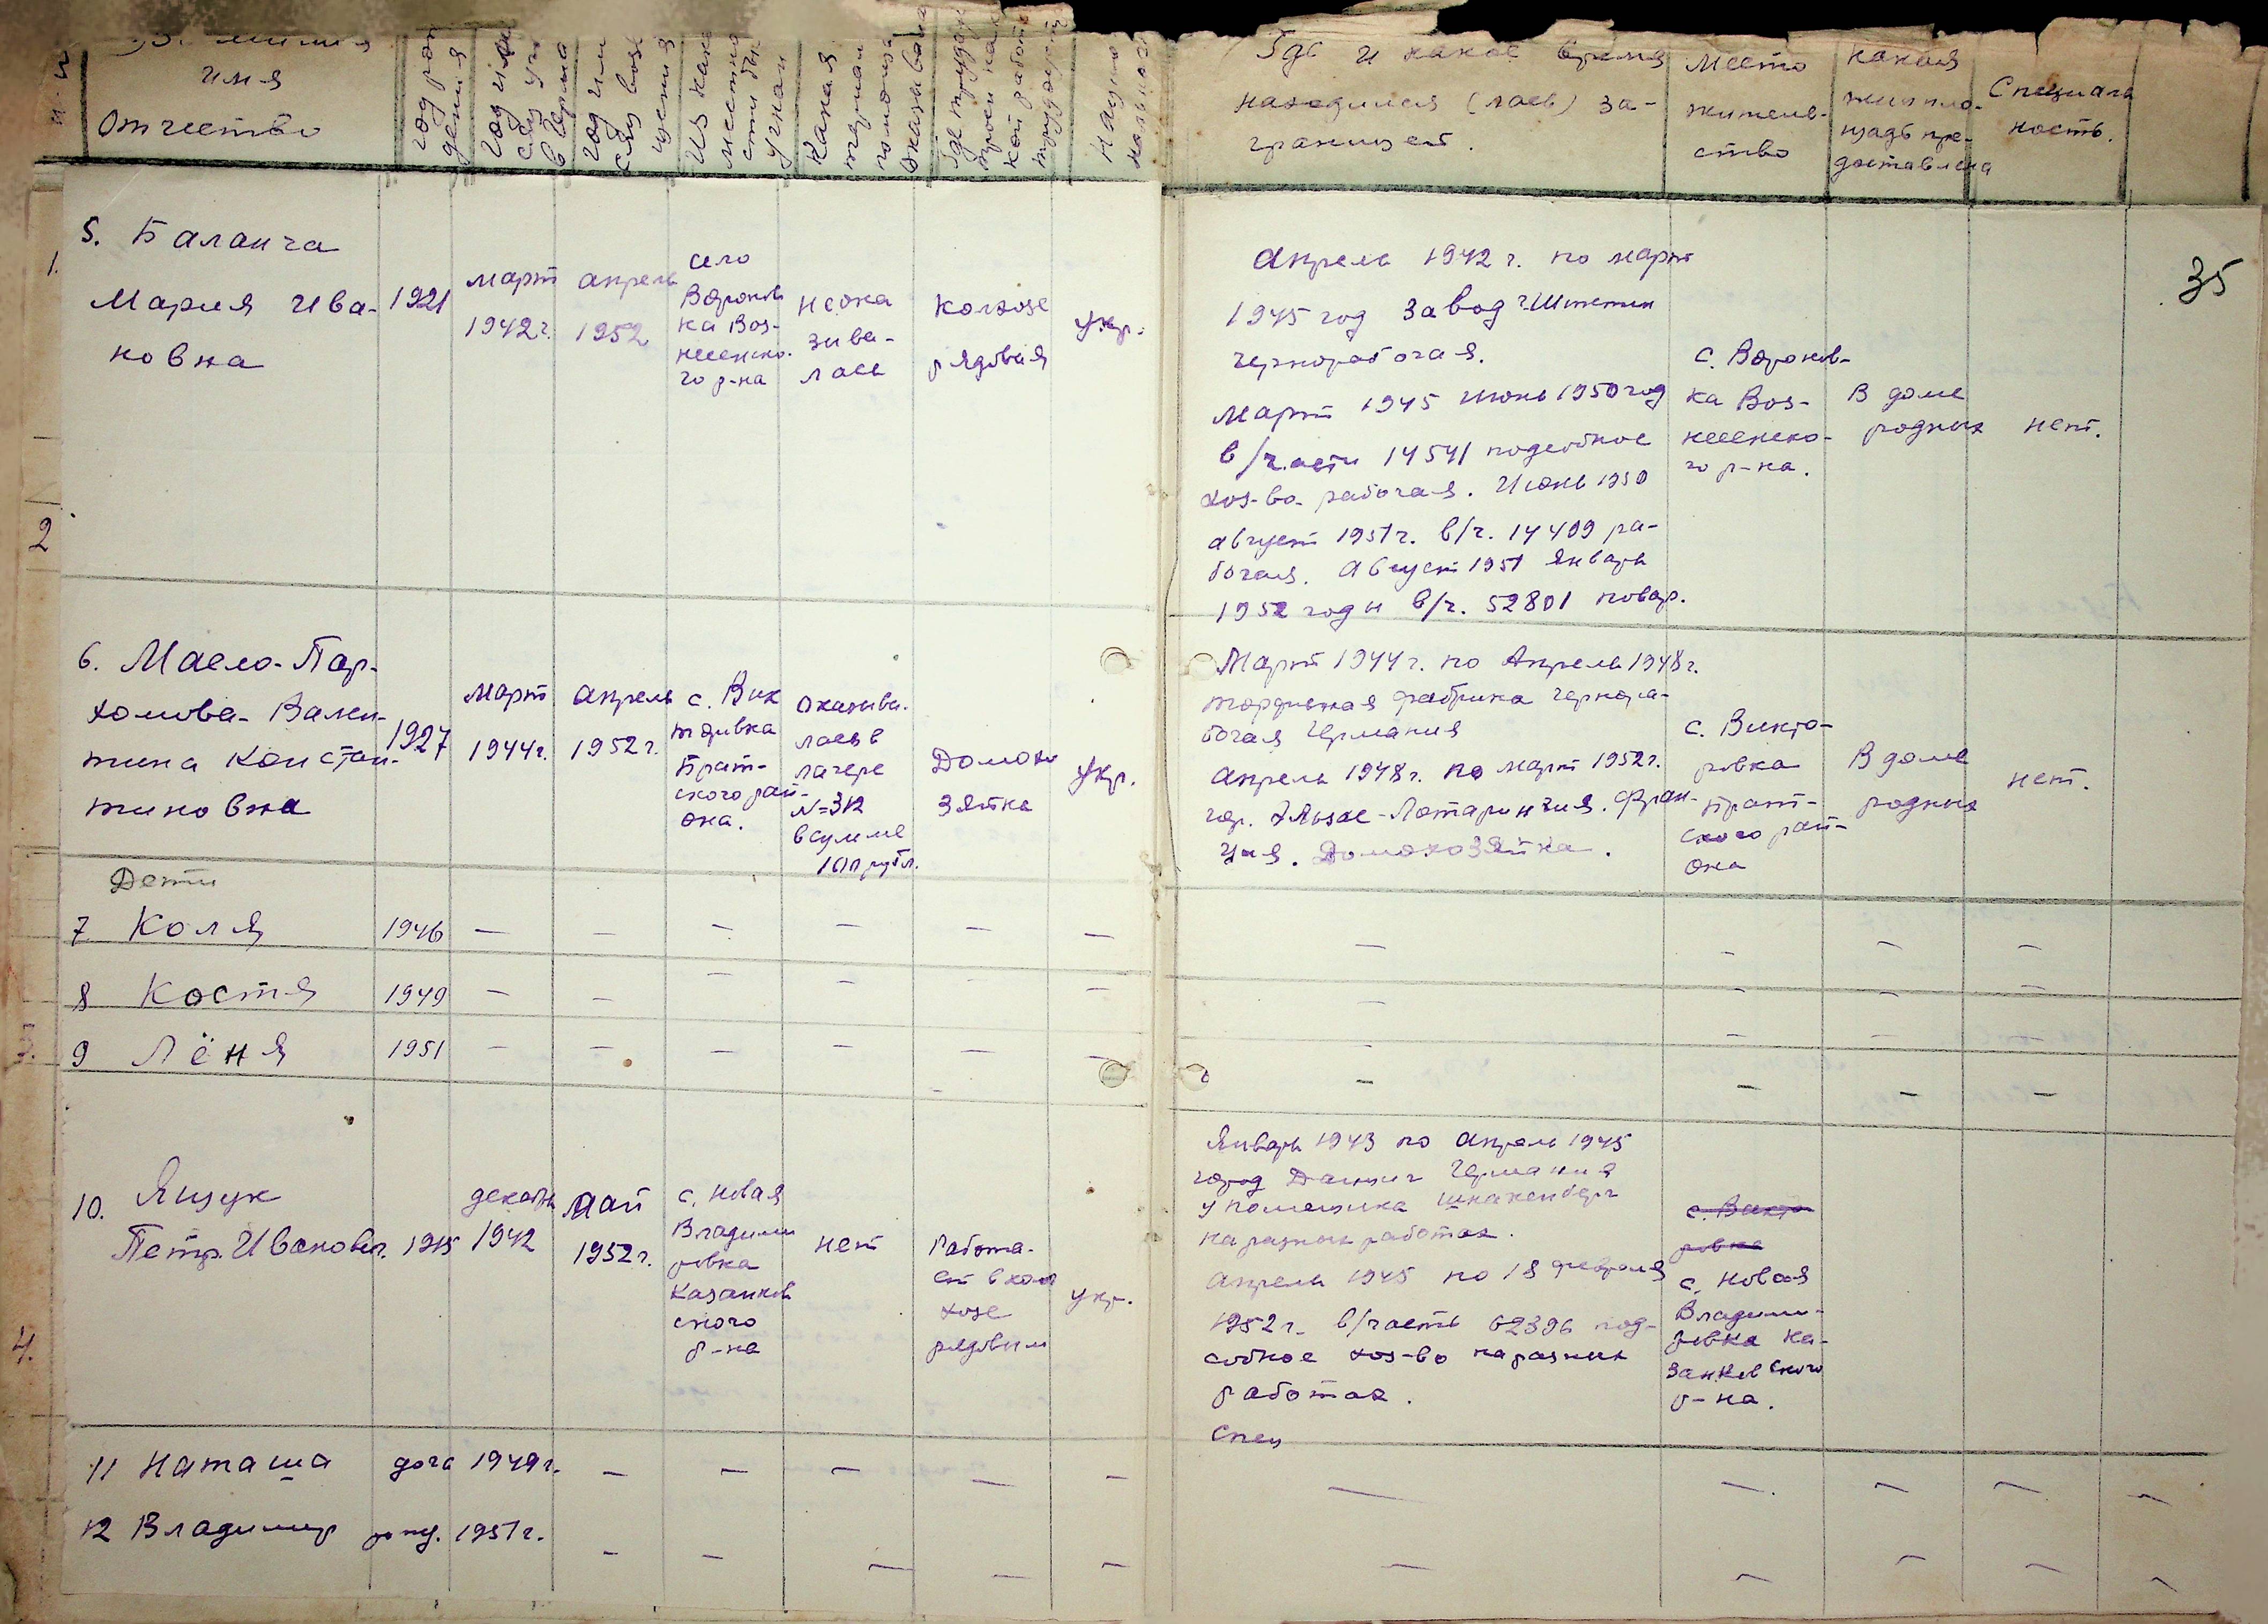 имя
Отчество
Год рож
дения
Из како
местно
сти был
угнан
Какая
Где и какое время
находился (лась) за-
границей.
Место
житель-
ство
какая
жилпло-
щадь пре-
доставлена
Специаль
ность.
35
1.
5. Баланча
Мария Ива-
новна
1921
март
1942 г.
апрель
1952
село
Воронов
ка Воз-
несенско-
го р-на
неока
зива-
лась
Колхозе
рядовая
укр.
Апрель 1942 г. по март
1945 год завод г. Штетин
чернорабочая.
Март 1945 июнь 1950 год
в/части 14541 подсобное
хоз-во рабочая. Июнь 1950
август 1951 г. в/ч. 14499 ра-
бочая. Август 1951 январь
1952 годы в/ч. 52801 повар.
с. Воронов-
ка Воз-
несенско-
го р-на.
В доме
родных
нет.
2
6. Масло-Пар-
хомова- Вален-
тина Констан-
тиновна
1927
март
1944 г.
апрель
1952 г.
с. Вик
торивка
Брат-
ского рай-
она.
оказыва-
лась в
лагере
№ 312
в сумме
100 рубл.
Домохо
зяйка
Укр.
Март 1944 г. по Апрель 1948 г.
торфяная фабрика чернора-
бочая Германия
Апрель 1948 г. по март 1952 г.
гор. Эльзас-Лотарингия. Фран-
ция. Домохозяйка.
с. Викто-
ровка
Брат-
ского рай-
она
В доме
родных
нет.
Дети
7 Коля 1946 — — — — — — — — — —
8 Костя 1949 — — — — — — — — — —
9 Лёня 1951 — — — — — — — — — —
3.
4.
10. Ящук
Петр. Иванович.
1915
декабрь
1942
май
1952 г.
с. Новая
Владими
ровка
Казанков
ского
р-на
нет
Работа-
ет в кол
хозе
рядовым
укр.
Январь 1943 по апрель 1945
город Данциг Германия
у помещика Шнакенберг
на разных работах.
апрель 1945 по 18 февраля
1952 г. в/часть 62396 под-
собное хоз-во на разных
работах.
Спец
с. Викто
ровка
с. Новая
Владими-
ровка Ка-
занковского
р-на.
11 Наташа дочь 1949 г. — — — — — — — — — —
12 Владимир 1951 г. — — — — — — — — — —